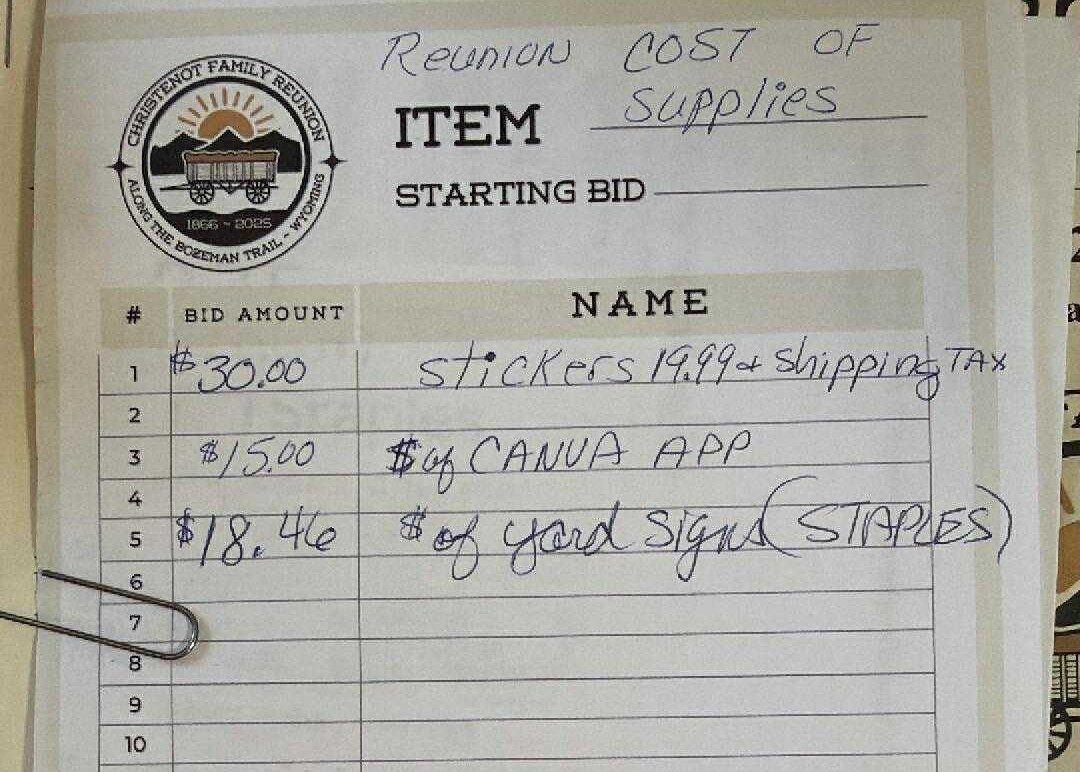 Reunion COST OF
supplies
CHRISTENOT FAMILY REUNION
ALONG THE BOZEMAN TRAIL ~ WYOMING
1866 ~ 2025
ITEM
STARTING BID
# BID AMOUNT NAME
1 $30.00 stickers 19.99 & Shipping TAX
2
3 $15.00 $ of CANVA APP
4
5 $18.46 $ of yard signs (STAPLES)
6
7
8
9
10